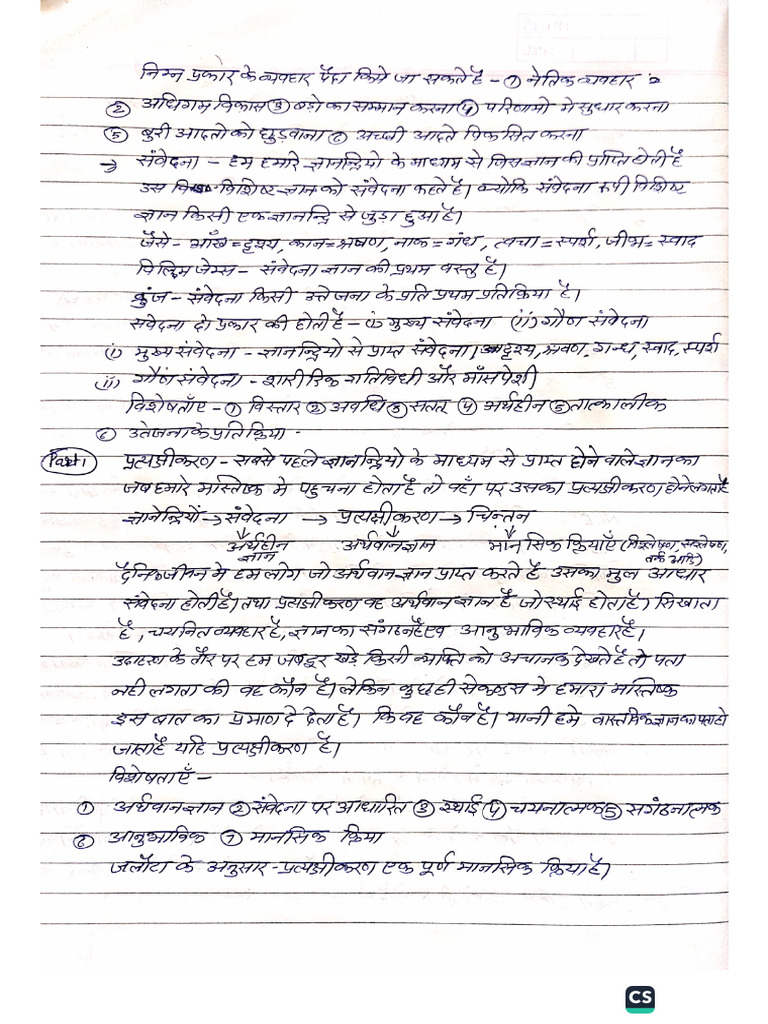 निम्न प्रकार के व्यवहार पैदा किये जा सकते है - ① नैतिक व्यवहार
② अधिगम विकास ③ बड़ो का सम्मान करना ④ परिणामो मे सुधार करना
⑤ बुरी आदतो को छुड़वाना ⑥ अच्छी आदते विकसित करना
→ संवेदना - हम हमारे ज्ञानन्द्रियो के माध्यम से जिस ज्ञान की प्राप्ति होती है
उस विशिष्ट ज्ञान को संवेदना कहते है। क्योकि संवेदना रूपी विशिष्ट
ज्ञान किसी एक ज्ञानन्द्रि से जुड़ा हुआ है।
जैसे - आँख = दृश्य, कान = श्रषण, नाक = गंध, त्वचा = स्पर्श, जीभ = स्वाद
विलियम जेम्स - संवेदना ज्ञान की प्रथम वस्तु है।
संवेदना किसी उत्तेजना के प्रति प्रथम प्रतिक्रिया है।
सवेदना दो प्रकार की होती है - (i) मुख्य संवेदना (ii) गौण संवेदना
(i) मुख्य संवेदना - ज्ञानन्द्रियो से प्राप्त संवेदना। दृश्य, श्रवण, गन्ध, स्वाद, स्पर्श
(ii) गौण संवेदना - शारीरिक गतिविधी और माँसपेशी
विशेषताँए - ① विस्तार ② अवधि ③ सतत् ④ अर्थहीन ⑤ तात्कालीक
⑥ उतेजना के प्रति क्रिया -
Part 1 प्रत्यक्षीकरण - सबसे पहले ज्ञानन्द्रियो के माध्यम से प्राप्त होने वाले ज्ञान का
जब हमारे मस्तिष्क मे पहुचना होता है तो वहाँ पर उसका प्रत्यक्षीकरण होने लगता है
ज्ञानेन्द्रियाँ → संवेदना → प्रत्यक्षीकरण → चिन्तन
अर्थहीन ज्ञान अर्थवान ज्ञान मानसिक क्रियाएँ (विश्लेषण, सश्लेषण, तर्क आदि)
दैनिक जीवन मे हम लोग जो अर्थवान ज्ञान प्राप्त करते है उसका मुल आधार
संवेदना होती है। तथा प्रत्यक्षीकरण वह अर्थवान ज्ञान है जो स्थाई होता है। सिखाता
है, चयनित व्यवहार है, ज्ञान का संगठन है एव आनुभाविक व्यवहार है।
उदाहरण के तौर पर हम जब दूर खड़े किसी व्यक्ति को अचानक देखते है तो पता
नही लगता की वह कौन है। लेकिन कुछ ही सेकण्डस मे हमारा मस्तिष्क
इस बात का प्रमाण दे देता है। कि वह कौन है। यानी हमे वास्तविक ज्ञान का पता हो
जाता है यहि प्रत्यक्षीकरण है।
विशेषताएँ -
① अर्थवान ज्ञान ② संवेदना पर आधारित ③ स्थाई ④ चयनात्मक ⑤ सगंठनात्मक
⑥ आनुभाविक ⑦ मानसिक क्रिया
जलोटा के अनुसार - प्रत्यक्षीकरण एक पूर्ण मानसिक क्रिया है।
CS